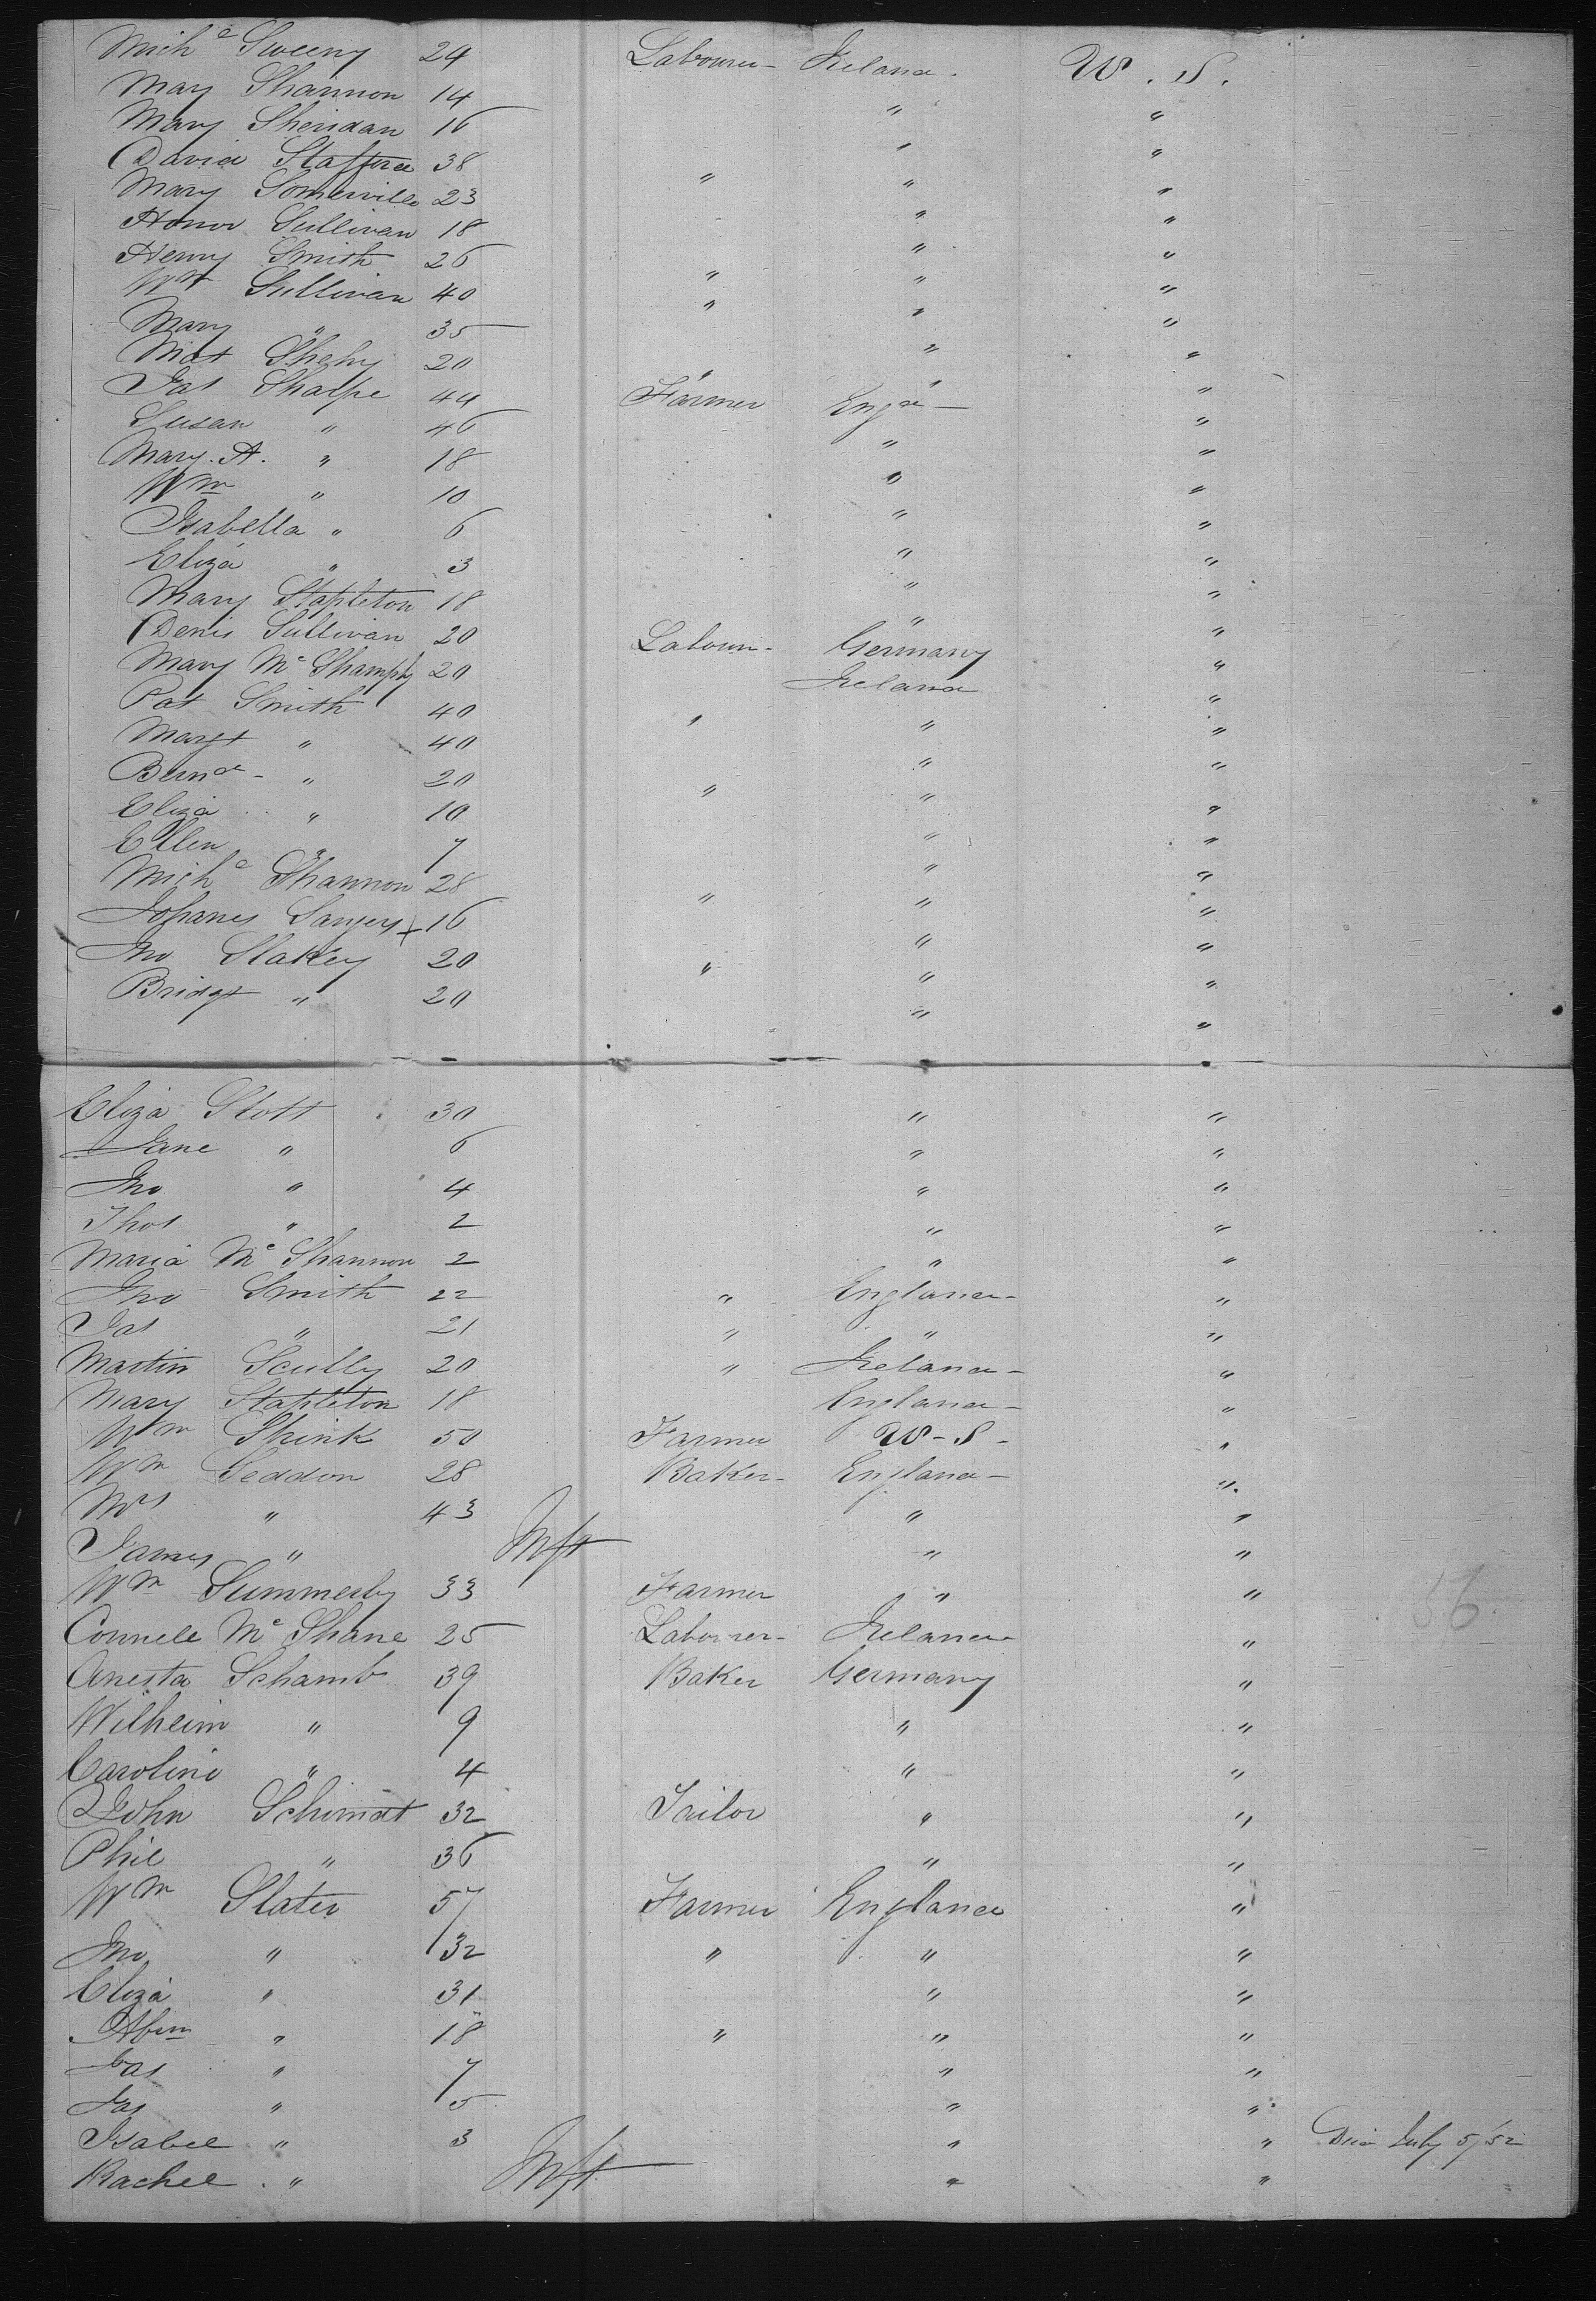 Mich^l Sweeny 24 Labourer Ireland . U . S .
Mary Shannon 14 " "
Mary Sheridan 16 " "
David Stafford 38 " " "
Mary Somerville 23 " "
Honor Sullivan 18 " "
Henry Smith 26 " " "
Wm Sullivan 40 " " "
Mary " 35 " "
Mat Shehy 20 " " "
Jas Sharpe 44 Farmer Engd "
Susan " 46 " "
Mary . A . " 18 " "
Wm " 10 " "
Isabella " 6 " "
Eliza " 3 " "
Mary Stapleton 18 " "
Denis Sullivan 20 Labour- Germany "
Mary Mc Shamply 20 Ireland "
Pat Smith 40 " " "
Margt " 40 " "
Bernd - " 20 " " "
Eliza " 10 " "
Ellen " 7 " "
Mich^l Shannon 28 " " "
Johanes Sanjers + 16 " "
Jno Slakey 20 " " "
Bridgt " 20 " "
Eliza Stott 30 " "
Jane " 6 " "
Jno " 4 " "
Thos " 2 " "
Maria Mc Shannon 2 " "
Jno Smith 22 " England "
Jas " 21 " " "
Martin Scully 20 " Ireland "
Mary Stapleton 18 England "
Wm Shink 50 Farmer U - S - "
Wm Seddon 28 Baker England "
Mrs " 43 " "
James " Inft " "
Wm Summerby 33 Farmer " "
Connell Mc Shane 25 Labourer Ireland "
Anesta Schamb 39 Baker Germany "
Wilheim " 9 " "
Caroline " 4 " "
John Schimdt 32 Tailor " "
Phil " 36 " "
Wm Slater 57 Farmer England "
Jno " 32 " " "
Eliza " 31 " "
Abm " 18 " " "
Jas " 7 " "
Jas " 5 " "
Isabel " 3 " " Died July 5/52
Rachel . " Inft " "
56